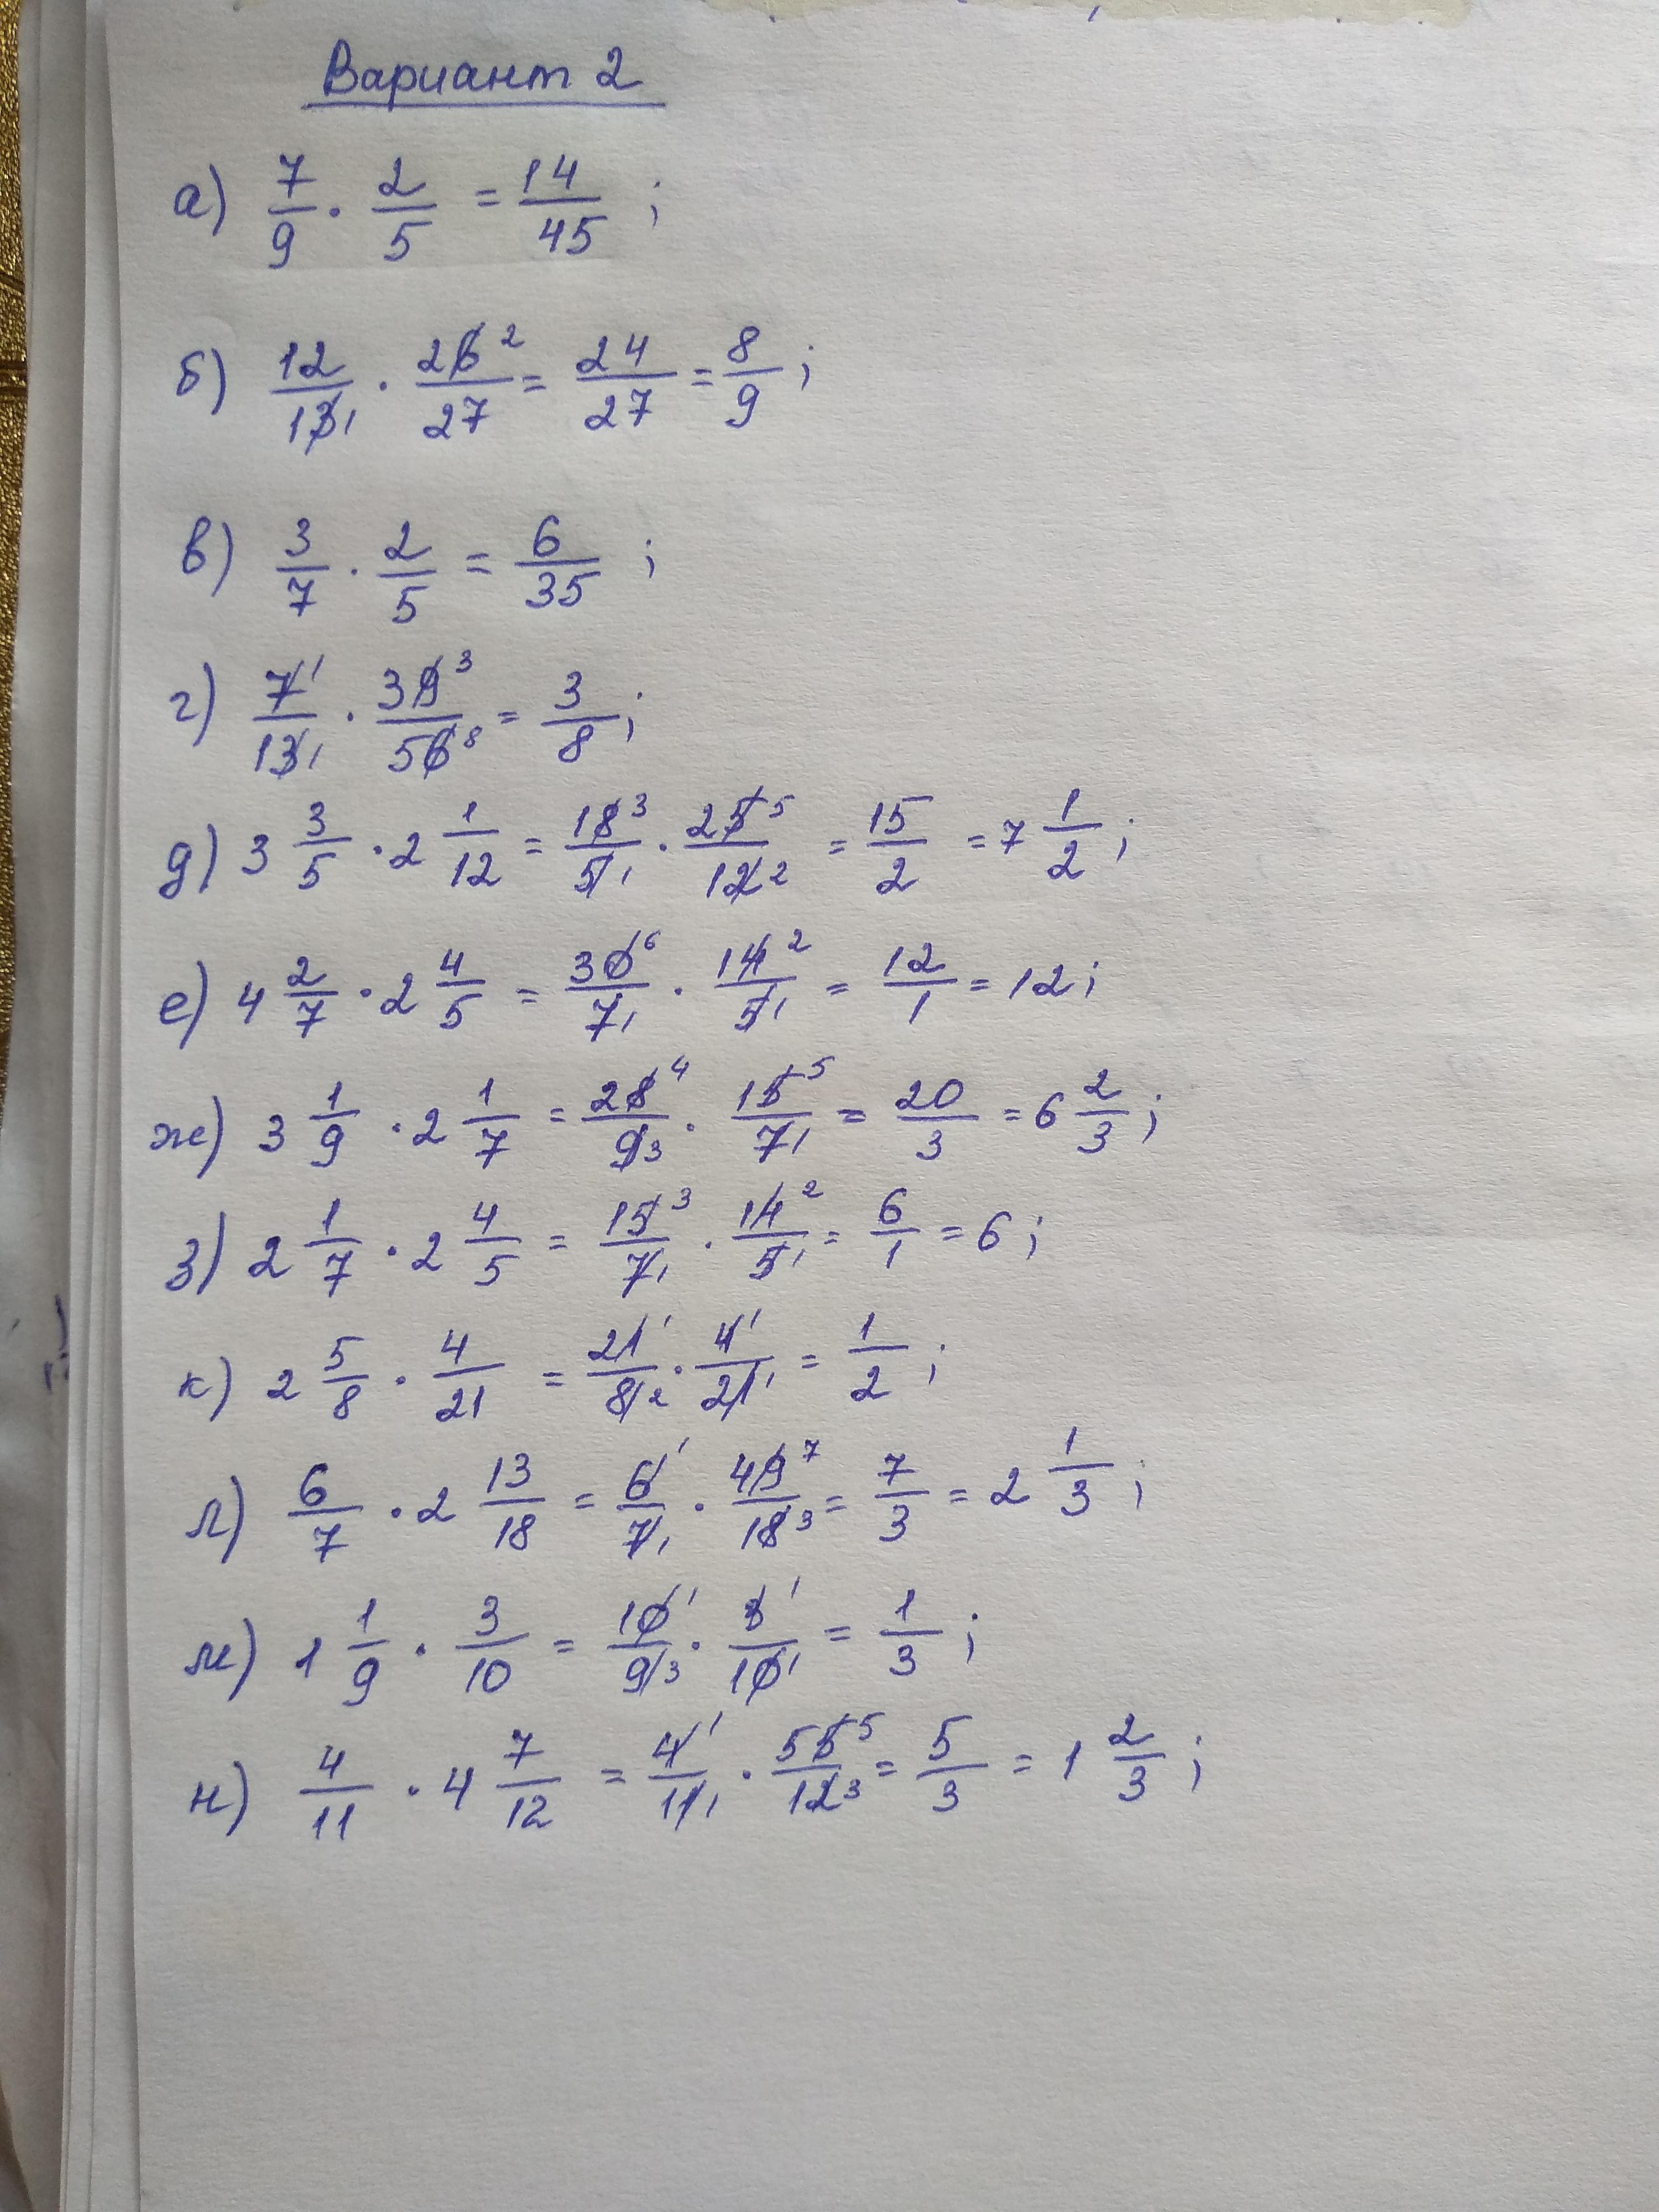 Вариант 2
а) 7/9 · 2/5 = 14/45 ;
б) 12/13 1 · 26 2/27 = 24/27 = 8/9 ;
в) 3/7 · 2/5 = 6/35 ;
г) 7 1/13 1 · 39 3/56 8 = 3/8 ;
д) 3 3/5 · 2 1/12 = 18 3/5 1 · 25 5/12 2 = 15/2 = 7 1/2 ;
е) 4 2/7 · 2 4/5 = 30 6/7 1 · 14 2/5 1 = 12/1 = 12 ;
ж) 3 1/9 · 2 1/7 = 28 4/9 3 · 15 5/7 1 = 20/3 = 6 2/3 ;
з) 2 1/7 · 2 4/5 = 15 3/7 1 · 14 2/5 1 = 6/1 = 6 ;
к) 2 5/8 · 4/21 = 21 1/8 2 · 4 1/21 1 = 1/2 ;
л) 6/7 · 2 13/18 = 6 1/7 1 · 49 7/18 3 = 7/3 = 2 1/3 ;
м) 1 1/9 · 3/10 = 10 1/9 3 · 3 1/10 1 = 1/3 ;
н) 4/11 · 4 7/12 = 4 1/11 1 · 55 5/12 3 = 5/3 = 1 2/3 ;